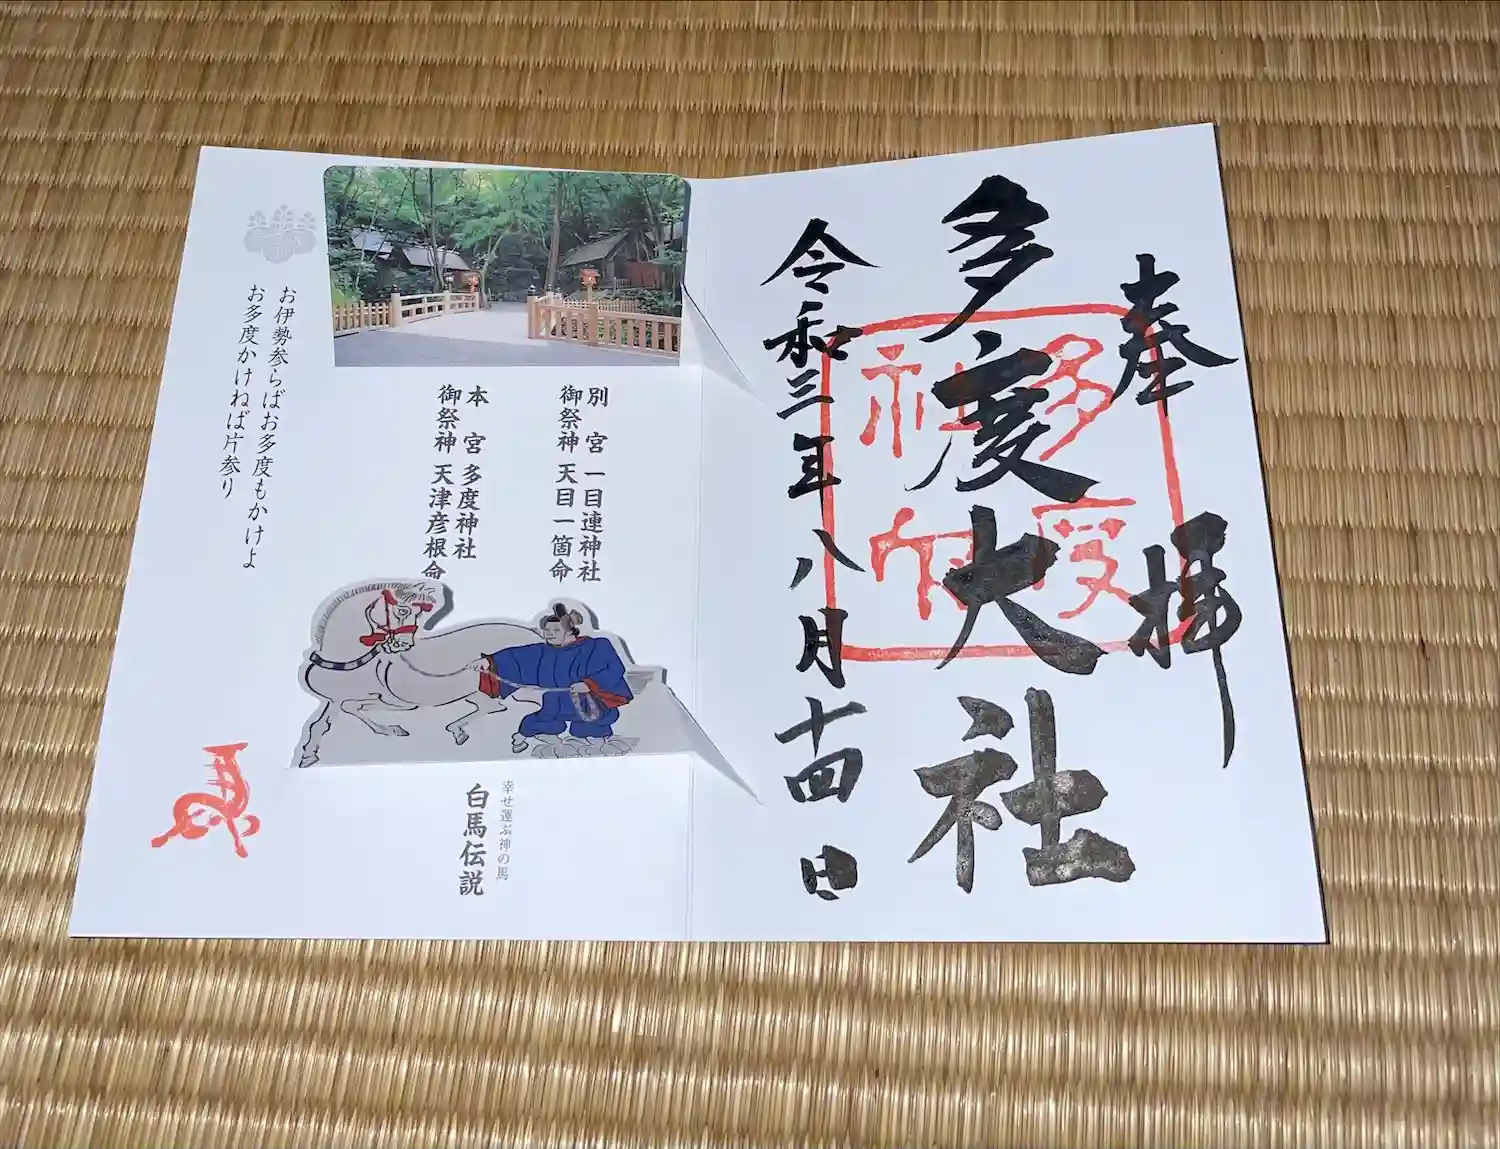 奉拝
多度大社
令和三年八月十四日
多度
神社
別宮 一目連神社
御祭神 天目一箇命
本宮 多度神社
御祭神 天津彦根命
お伊勢参らばお多度もかけよ
お多度かけねば片参り
幸せ運ぶ神の馬
白馬伝説